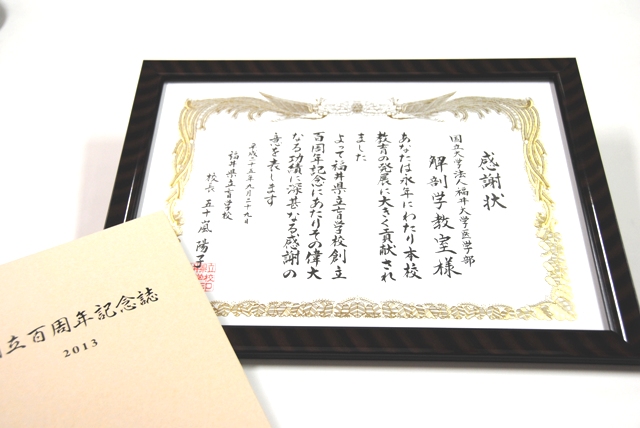 感謝状
国立大学法人福井大学医学部
解剖学教室様
あなたは永年にわたり本校
教育の発展に大きく貢献され
ました
よって福井県立盲学校創立
百周年記念にあたりその偉大
なる功績に深甚なる感謝の
意を表します
平成二十五年九月二十九日
福井県立盲学校
校長 五十嵐 陽子
立百周年記念誌
2013